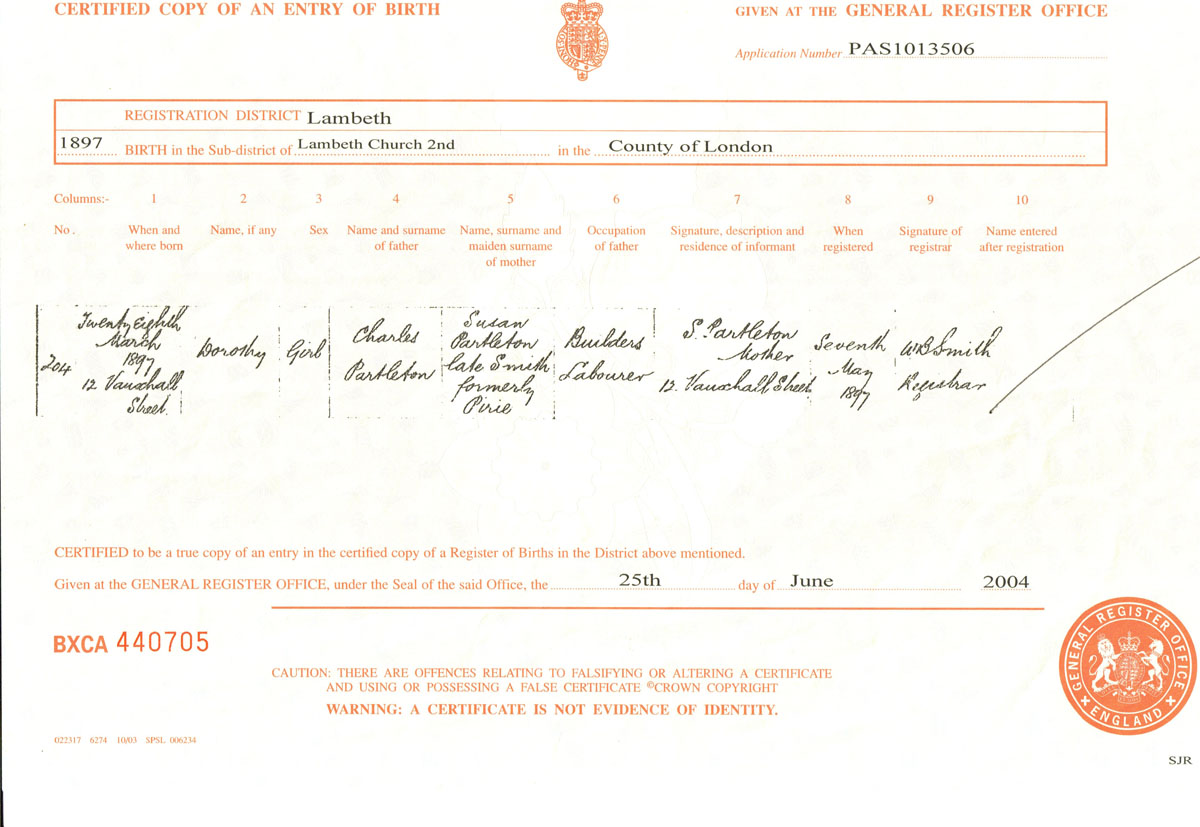 CERTIFIED COPY OF AN ENTRY OF BIRTH
GIVEN AT THE GENERAL REGISTER OFFICE
Application Number PAS1013506
REGISTRATION DISTRICT Lambeth
1897 BIRTH in the Sub-district of Lambeth Church 2nd in the County of London
Columns:- 1 2 3 4 5 6 7 8 9 10
No. When and where born Name, if any Sex Name and surname of father Name, surname and maiden surname of mother Occupation of father Signature, description and residence of informant When registered Signature of registrar Name entered after registration
204
Twenty Eighth
March
1897
12 Vauxhall
Street
Dorothy
Girl
Charles
Partleton
Susan
Partleton
late Smith
formerly
Pirie
Builders
Labourer
S. Partleton
Mother
12. Vauxhall Street
Seventh
May
1897
W B Smith
Registrar
CERTIFIED to be a true copy of an entry in the certified copy of a Register of Births in the District above mentioned.
Given at the GENERAL REGISTER OFFICE, under the Seal of the said Office, the 25th day of June 2004
BXCA 440705
CAUTION: THERE ARE OFFENCES RELATING TO FALSIFYING OR ALTERING A CERTIFICATE
AND USING OR POSSESSING A FALSE CERTIFICATE ©CROWN COPYRIGHT
WARNING: A CERTIFICATE IS NOT EVIDENCE OF IDENTITY.
GENERAL REGISTER OFFICE
ENGLAND
022317 6274 10/03 SPSL 006234
SJR